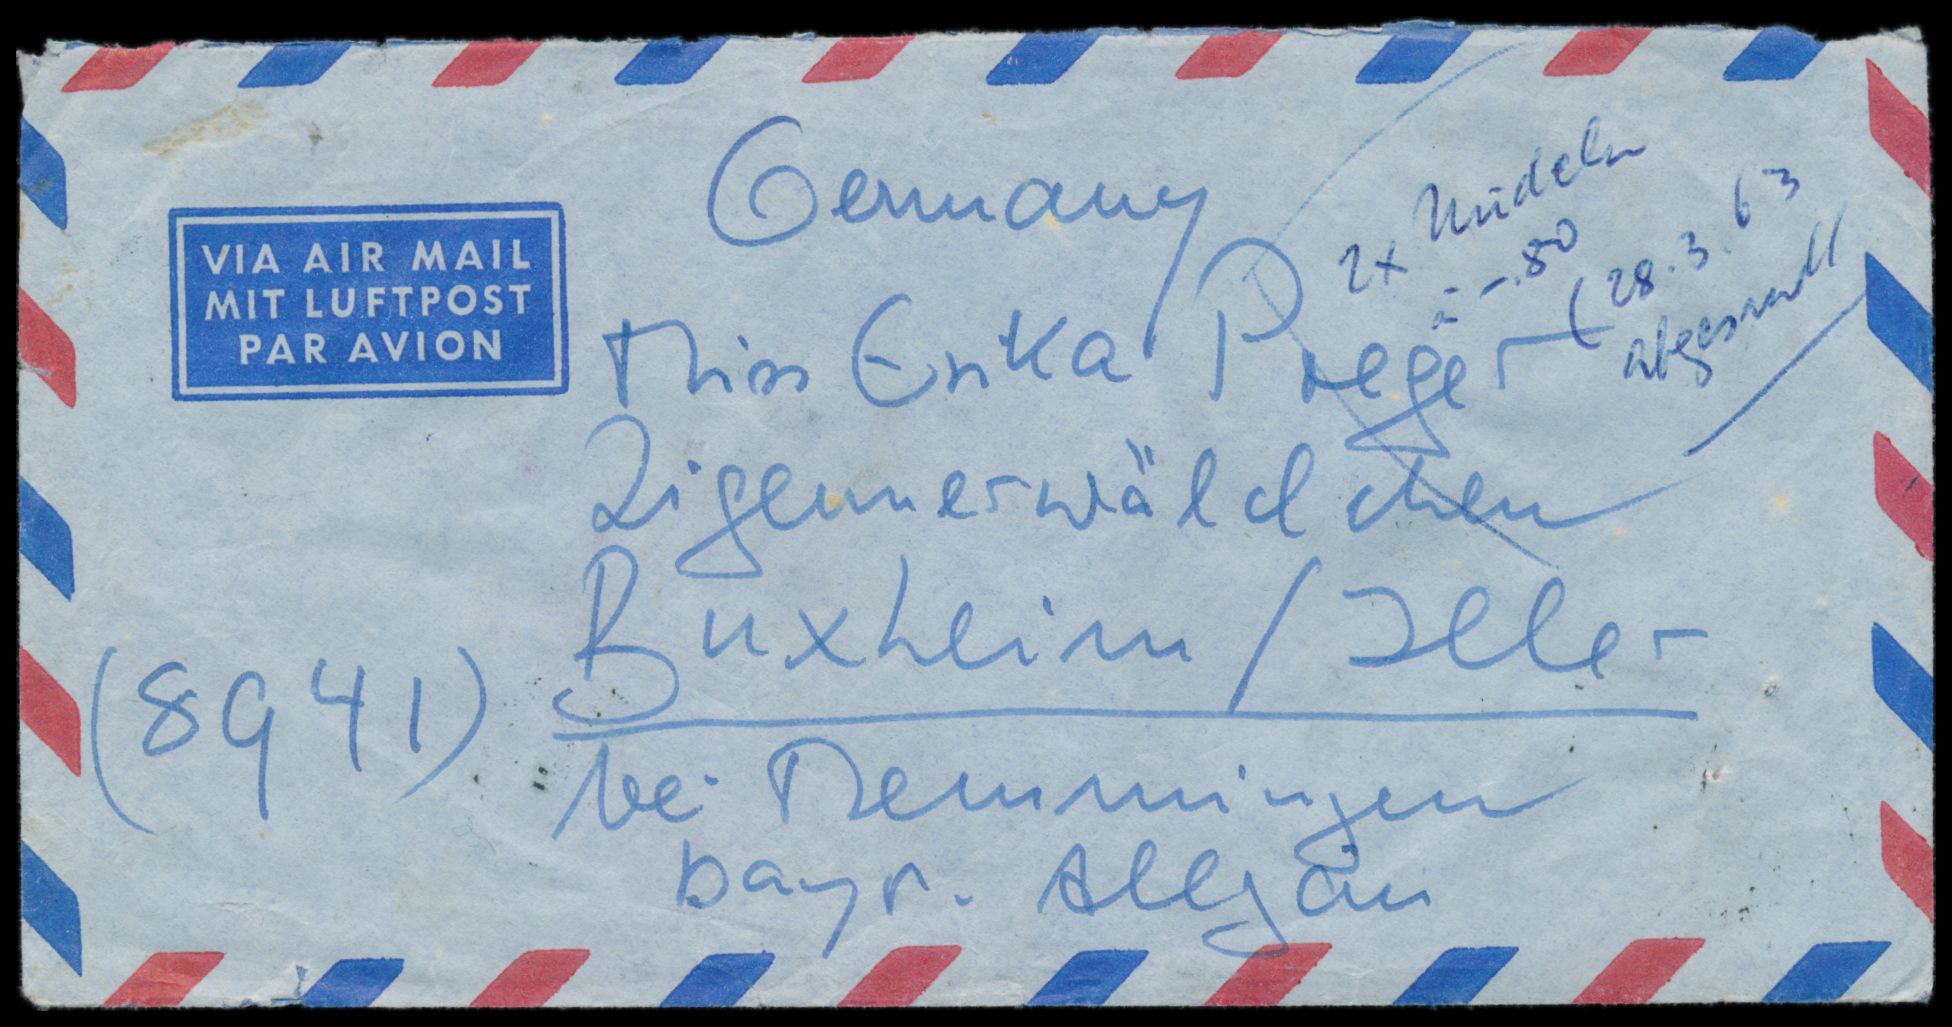 Germany
VIA AIR MAIL
MIT LUFTPOST
PAR AVION
2x Nudeln
à -.80
(28.3.63
abgesandt
Miss Erika Preger
Zigeunerwäldchen
Buxheim/Iller
(8941)
bei Memmingen
bayr. Allgäu